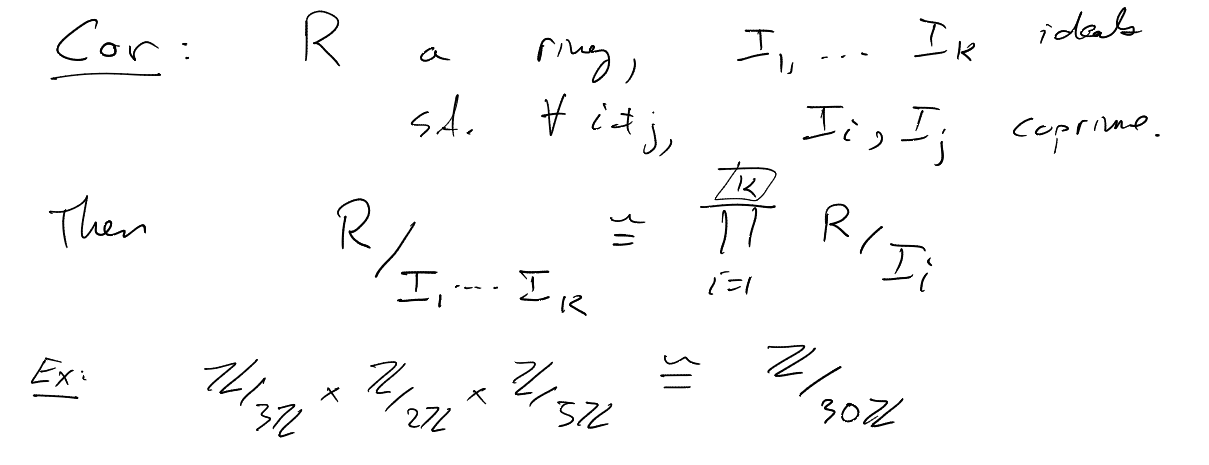 Cor: R a ring, I₁, ... I_k ideals
s.t. ∀ i≠j, I_i, I_j coprime.
Then R/I₁...I_k ≅ ∏_{i=1}^{k} R/I_i
Ex: ℤ/3ℤ × ℤ/2ℤ × ℤ/5ℤ ≅ ℤ/30ℤ